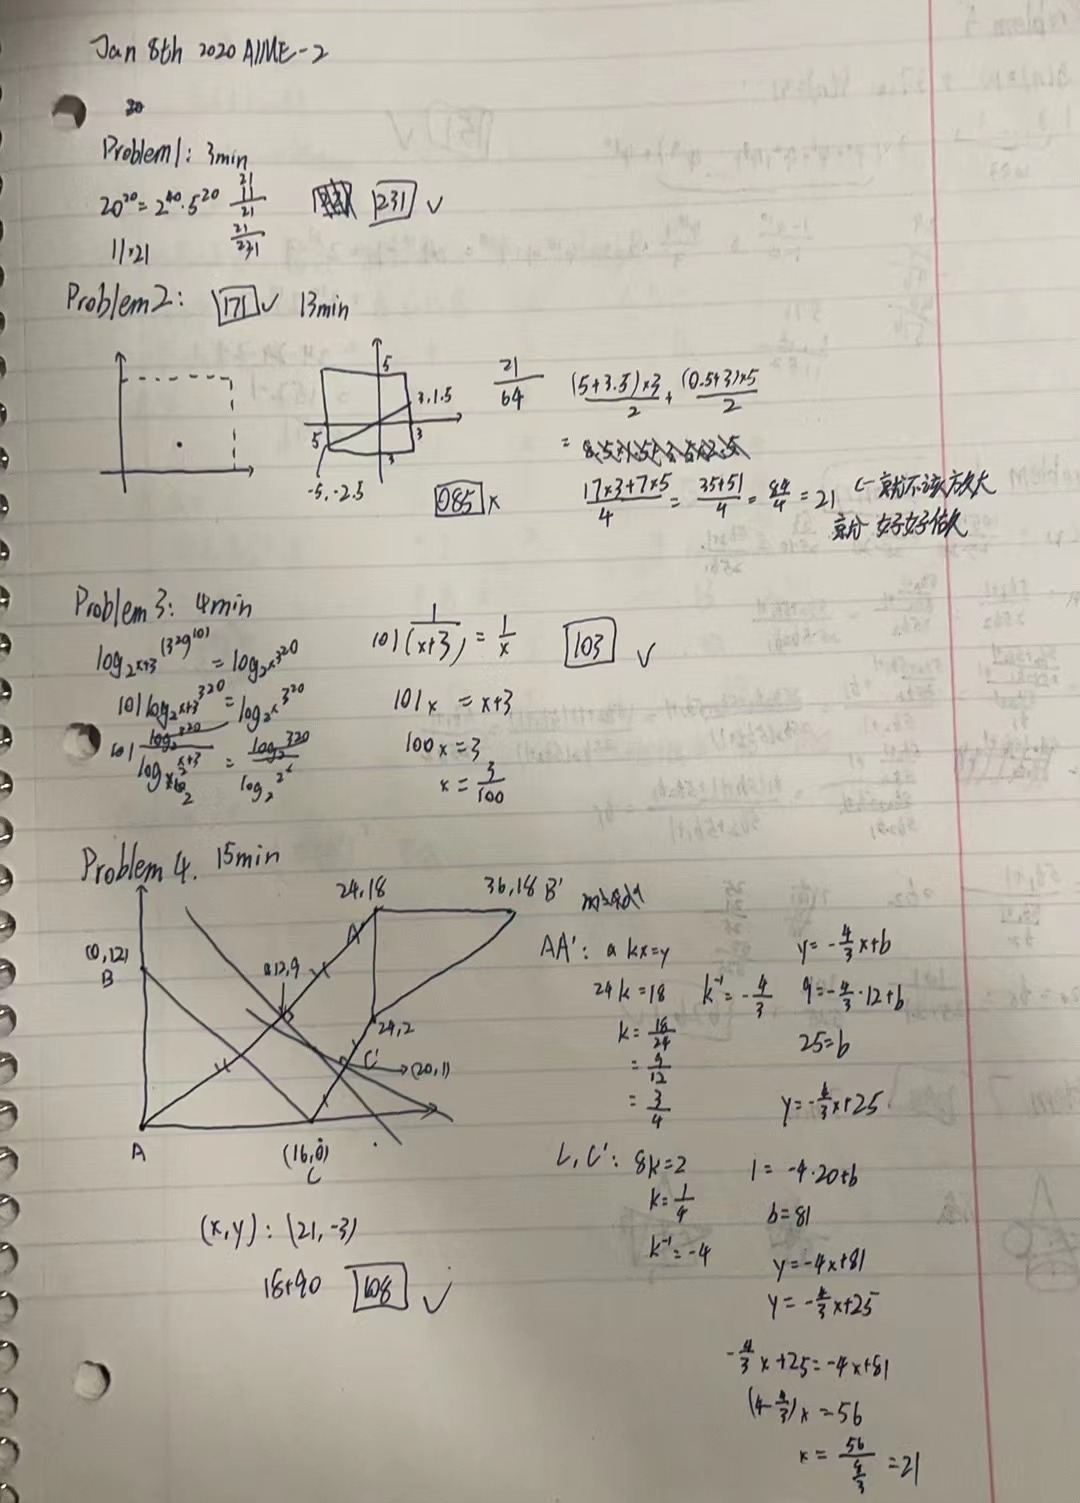 Jan 8th 2020 AIME-2
Problem1: 3min
20^20 = 2^40 · 5^20
11·21
21
11
21
21
231
231 ✓
Problem2: 171 ✓ 13min
5
3, 1.5
5
3
3
-5, -2.5
085 ×
21/64
(5+3.5)×3/2 + (0.5+3)×5/2
=
(17×3+7×5)/4 = (35+51)/4 = 84/4 = 21
Problem3: 4min
101
= log_2^x 3^20
101 log_2^x+3 3^20 = log_2^x 3^20
101 log_2 3^20 / = log_2 3^20 / log_2 2^x
101 (1/(x+3)) = 1/x
103 ✓
101x = x+3
100x = 3
x = 3/100
Problem 4. 15min
24,18
36,18 B'
A'
(0,12)
B
12,9
24,2
C'
(20,1)
A
(16,0)
C
(x,y): (21,-3)
18+90 108 ✓
AA': kx=y
24k=18
k = 18/24
= 9/12
= 3/4
k^-1 = -4/3
y = -4/3 x+b
9 = -4/3 · 12+b
25=b
y = -4/3 x+25
C,C': 8k=2
k = 1/4
k^-1 = -4
1 = -4·20+b
b=81
y=-4x+81
y = -4/3 x+25
-4/3 x+25 = -4x+81
(4-4/3)x = 56
x = 56/(8/3) = 21